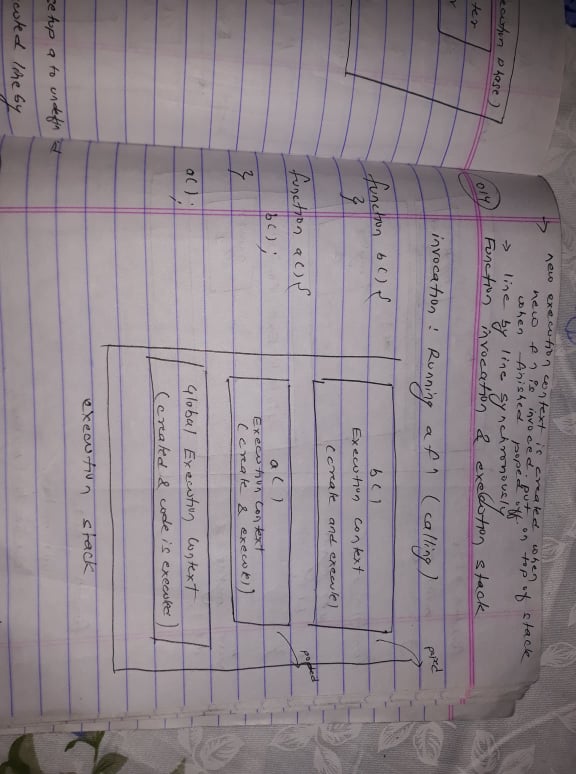 ecution phase)
new execution context is created when
new fn is invoced put on top of stack
when finished poped off
→ line by line synchronously
014 Function invocation & execution stack
invocation: Running a fn (calling)
function b() {
}
function a() {
b();
}
a();
b()
Execution context
(create and execute)
a()
Execution context
(create & execute))
poped
Global Execution Context
(created & code is executed)
execution stack
setup a to undefined
line by